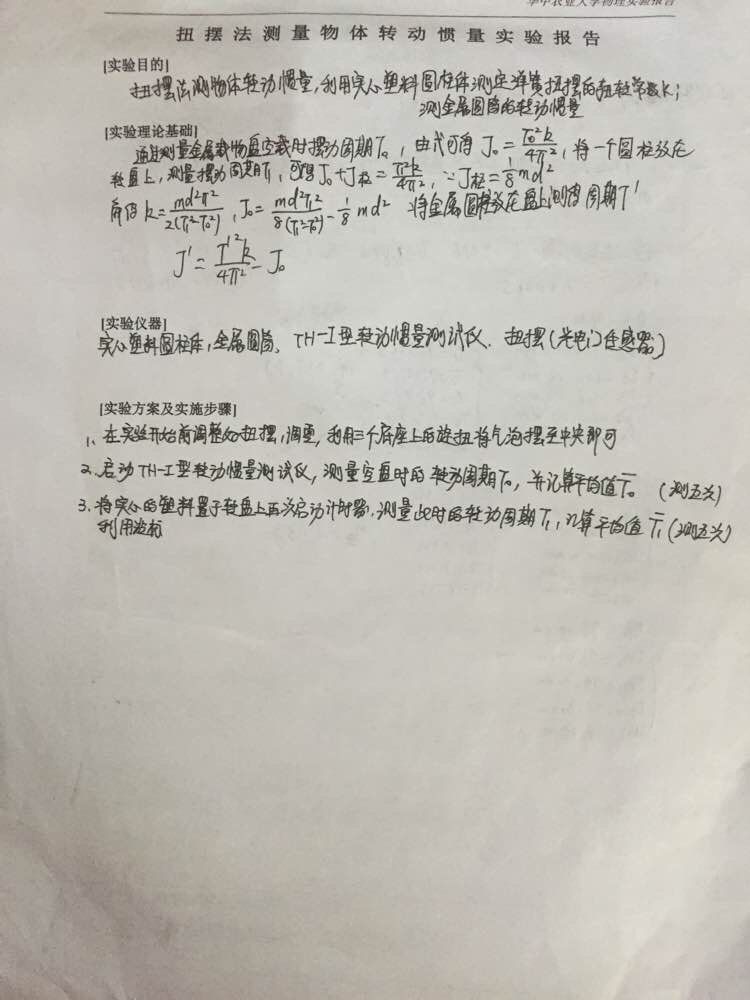 华中农业大学物理实验报告
扭摆法测量物体转动惯量实验报告
[实验目的]
扭摆法测物体转动惯量,利用实心塑料圆柱体测定弹簧扭摆的扭转常数K;
测金属圆筒的转动惯量
[实验理论基础]
通过测量金属载物盘空载时摆动周期T₀,由式可得 J₀ = T₀²k/4π²,将一个圆柱放在
转盘上,测量摆动周期T₁,可得J₀+J柱 = T₁²k/4π²,∵J柱=1/8md²
k=md²π²/2(T₁²-T₀²),J₀=md²T₁²/8(T₁²-T₀²)-1/8md² 将金属圆柱放在盘上测得周期T'
J'=T'²k/4π²-J₀
[实验仪器]
实心塑料圆柱体,金属圆筒、TH-I型转动惯量测试仪、扭摆(光电门传感器)
[实验方案及实施步骤]
1、在实验开始前调整好扭摆,调平,利用三个底座上的旋扭将气泡摆至中央即可
2、启动TH-I型转动惯量测试仪,测量空盘时的转动周期T₀,并记算平均值T̄₀(测五次)
3、将实心的塑料置于转盘上再次启动计时器,测量此时的转动周期T₁,计算平均值T̄₁(测五次)
利用